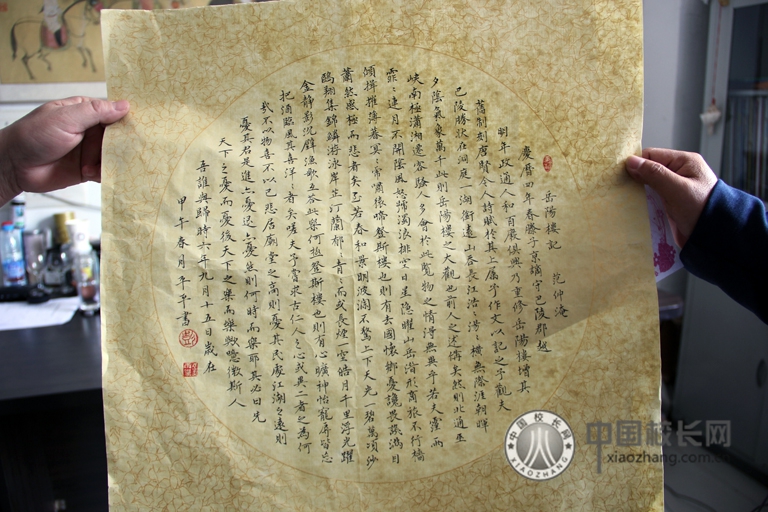 岳陽樓記 范仲淹
慶曆四年春滕子京謫守巴陵郡越
明年政通人和百廢俱興乃重修岳陽樓增其
舊制刻唐賢今人詩賦於其上屬予作文以記之予觀夫
巴陵勝狀在洞庭一湖銜遠山吞長江浩〻湯〻橫無際涯朝暉
夕陰氣象萬千此則岳陽樓之大觀也前人之述備矣然則北通巫
峽南極瀟湘遷客騷人多會於此覽物之情得無異乎若夫霪雨
霏〻連月不開陰風怒號濁浪排空日星隱曜山岳潛形商旅不行檣
傾楫摧薄暮冥〻虎嘯猿啼登斯樓也則有去國懷鄉憂讒畏譏滿目
蕭然感極而悲者矣至若春和景明波瀾不驚上下天光一碧萬頃沙
鷗翔集錦鱗游泳岸芷汀蘭郁〻青〻而或長煙一空皓月千里浮光躍
金靜影沉璧漁歌互答此樂何極登斯樓也則有心曠神怡寵辱皆忘
把酒臨風其喜洋〻者矣嗟夫予嘗求古仁人之心或異二者之為何
哉不以物喜不以己悲居廟堂之高則憂其民處江湖之遠則
憂其君是進亦憂退亦憂然則何時而樂耶其必曰先
天下之憂而憂後天下之樂而樂歟噫微斯人
吾誰與歸時六年九月十五日歲在
甲午春月平平書
中国校长网
xiaozhang.com.cn